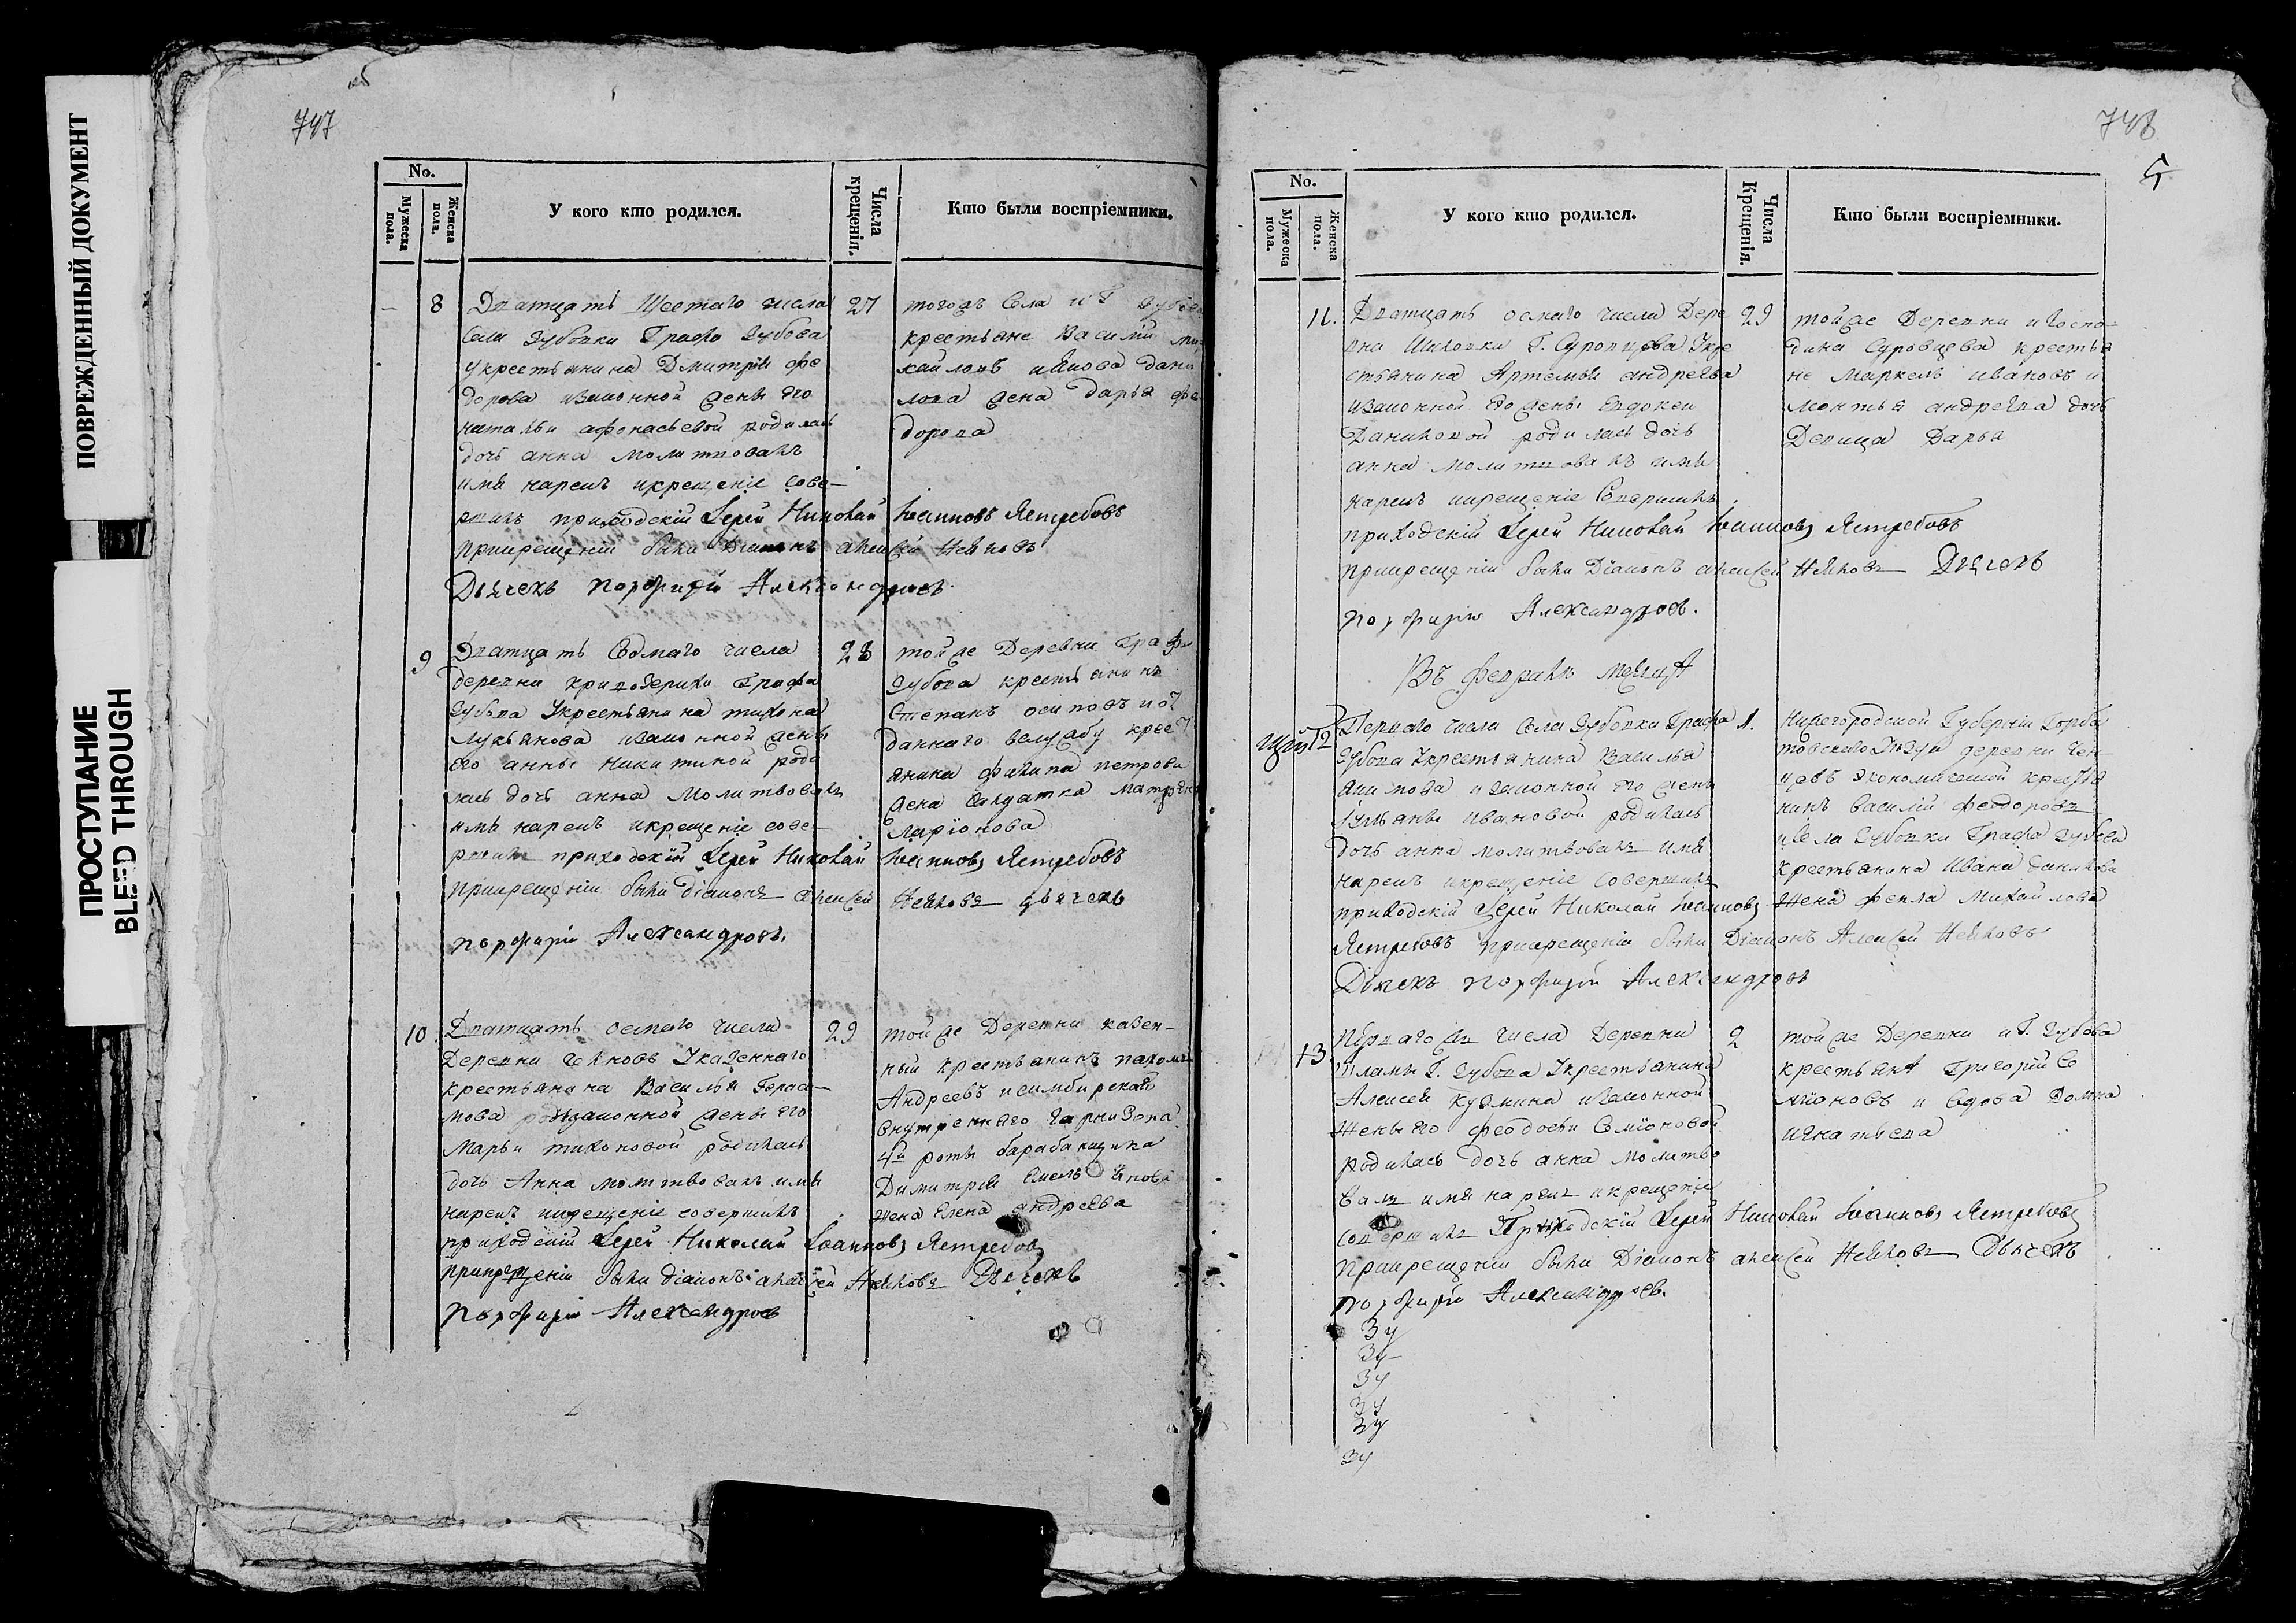 ПОВРЕЖДЕННЫЙ ДОКУМЕНТ
ПРОСТУПАНИЕ
BLEED THROUGH
747
No.
Мужеска пола.
Женска пола.
У кого кто родился.
Числа крещенія.
Кто были воспріемники.
8
Дватцать Шестаго числа
села Зубовки Графа Зубова
у крестьянина Дмитрiя Фе
дорова изаконной жены его
Натальи афонасьевой родилась
дочь анна молитвовалъ
имя нарекъ икрещеніе сове-
ршилъ приходскій Іерей Николай Іоанновъ Ястребовъ
прикрещеніи были Діаконъ алексей
Дьячекъ порфирій Александровъ
27
тогожъ села и Г Зубова
крестьяне Василій ми
хайловъ иякова дани
лова жена дарья фе
дорова
9
Дватцать Седмаго числа
деревни Графа
Зубова Укрестьянина тихона
лукьянова изаконной жены
его анны никитиной роди
лась дочь анна молитвовалъ
имя нарекъ икрещеніе сове-
ршилъ приходскій Іерей Николай Іоанновъ Ястребовъ
прикрещеніи были діаконъ алексей дьячекъ
порфирій Александровъ.
28
тойже Деревни Графа
Зубова крестьянинъ
Степанъ осиповъ и от
даннаго вслужбу крест
янина филипа петрова
жена салдатка матрена
ларіонова
10
Дватцать осмаго числа
Деревни Указеннаго
крестьянина Василья Гераси-
мова изаконной жены его
Марьи тихоновой родилась
дочь Анна молитвовалъ имя
нарекъ икрещеніе совершилъ
приходскій Іерей Николай Іоанновъ Ястребовъ
прикрещеніи были діаконъ алексей Дьячекъ
Порфирій Александровъ
29
тойже Деревни казен-
ный крестьянинъ пахомъ
Андреевъ исимбирскаго
внутренняго гарнизона
4й роты барабанщика
Димитрія
жена Елена андреева
748
5
No.
Мужеска пола.
Женска пола.
У кого кто родился.
Числа Крещенія.
Кто были воспріемники.
11.
Дватцать осмаго числа Дере
вна Г. Суровцова Укре
стьянина Артемья андреева
изаконной его жены Евдокеи
Даниловой родилась дочь
анна молитвовалъ имя
нарекъ икрещеніе Совершилъ
приходскій Іерей Николай Іоанновъ Ястребовъ
прикрещеніи были Діаконъ алексей Дьячекъ
порфирій Александровъ.
29
тойже Деревни и Госпо-
дина Суровцева крестья
не Маркелъ ивановъ и
андреева дочь
Девица Дарья
Въ Февралѣ месяцѣ
12
Перваго числа Села Зубовки Графа
Зубова Укрестьянина Василья
изаконной его жены
Ульяны ивановой родилась
дочь анна молитвовалъ имя
нарекъ икрещеніе совершилъ
приходскій Іерей Николай Іоанновъ
Ястребовъ прикрещеніи были Діаконъ Алексей
Дьячекъ порфирій Александровъ
1.
Нижегородской Губерніи Горба
товскаго Уѣзда деревни
экономической крестья
нинъ василій федоровъ
исела Зубовки Графа Зубова
крестьянина ивана данилова
жена фекла Михайлова
13.
Перваго числа Деревни
Г. Зубова Укрестьянина
Алексея кузмина изаконной
жены его феодосьи Семіоновой
родилась дочь анна молитво
валъ имя нарекъ икрещеніе
совершилъ Приходскій Іерей Николай Іоанновъ Ястребовъ
прикрещеніи были Діаконъ алексей Дьячекъ
порфирій Александровъ.
2
тойже Деревни и Г. Зубова
крестьянѣ Григорій Се
міоновъ и вдова Домна
игнатьева
Зу
Зу
Зу
Зу
Зу
Зу